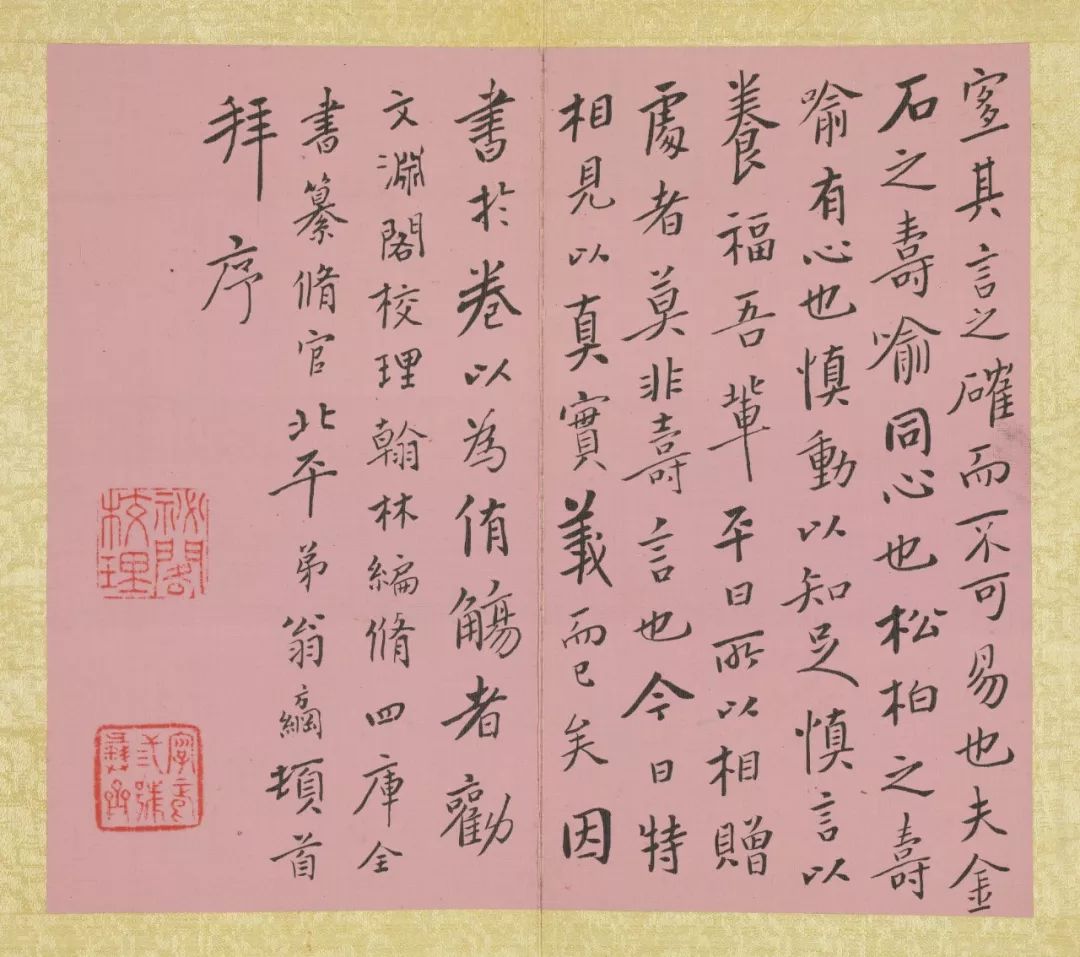 寔其言之確而不可易也夫金
石之壽喻同心也松柏之壽
喻有心也慎動以知足慎言以
養福吾輩平日所以相贈
處者莫非壽言也今日特
相見以真實義而已矣因
書於卷以為侑觴者勸
文淵閣校理翰林編脩四庫全
書纂脩官北平弟翁方綱頓首
拜序
祕閣校理